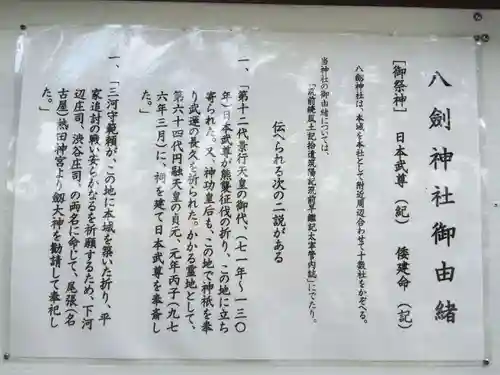 八劍神社御由緒
[御祭神] 日本武尊(紀) 倭建命(記)
八劍神社は、本城を本社として附近周辺合わせて十数社をかぞへる。
当神社の御由緒については、
「筑前続風土記拾遺風陽記筑前早鑑記太宰管内誌」にでたり。
伝へられる次の二説がある
一、「第十二代景行天皇の御代、(七一年〜一三〇
年)日本武尊が熊襲征伐の折り、この地に立ち
寄られた。又、神功皇后も、この地で神祇を奉
り武運の長久を祈られた。かかる霊地として、
第六十四代円融天皇の貞元、元年丙子(九七
六年三月)に、祠を建て日本武尊を奉斎し
た。」
一、「三河守範頼が、この地に本城を築いた折り、平
家追討の戦い安らかなるを祈願するため、下河
辺庄司、渋谷庄司、の両名に命じて、尾張(名
古屋)熱田神宮より劔大神を勧請して奉祀し
た。」